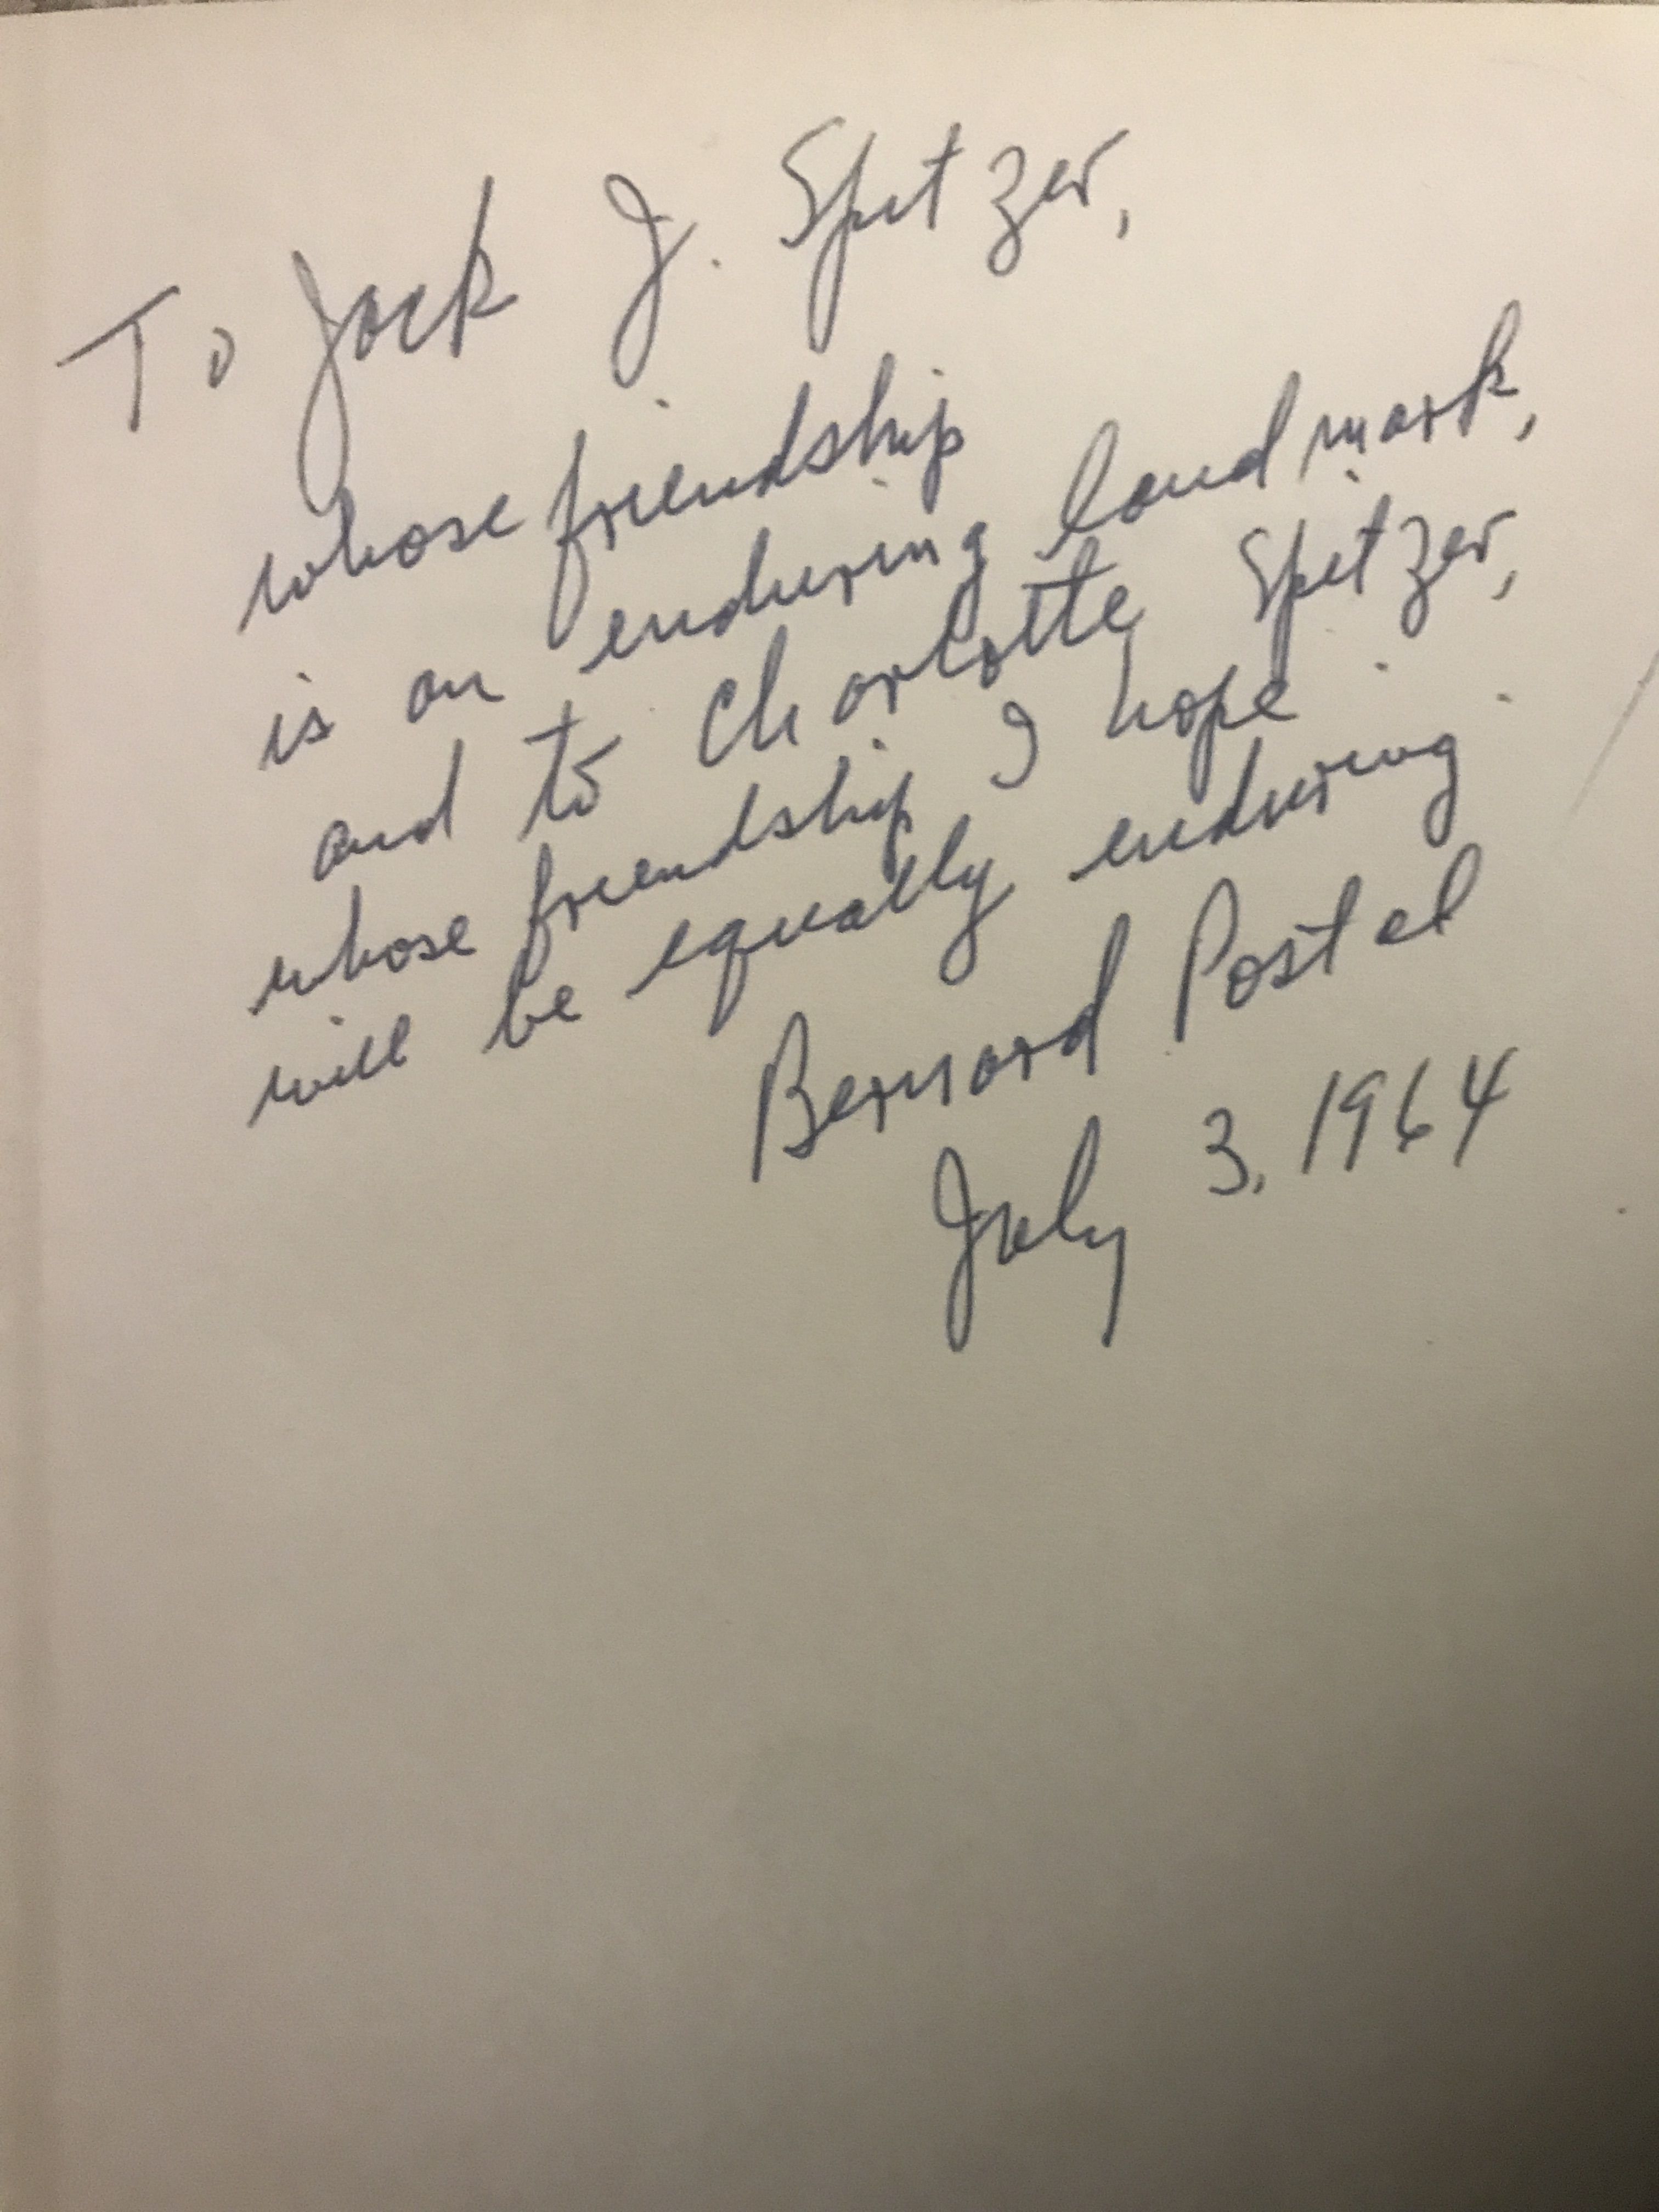 To Jack J. Spitzer,
whose friendship
is an enduring landmark,
and to Charlotte Spitzer,
whose friendship I hope
will be equally enduring
Bernard Postal
July 3, 1964